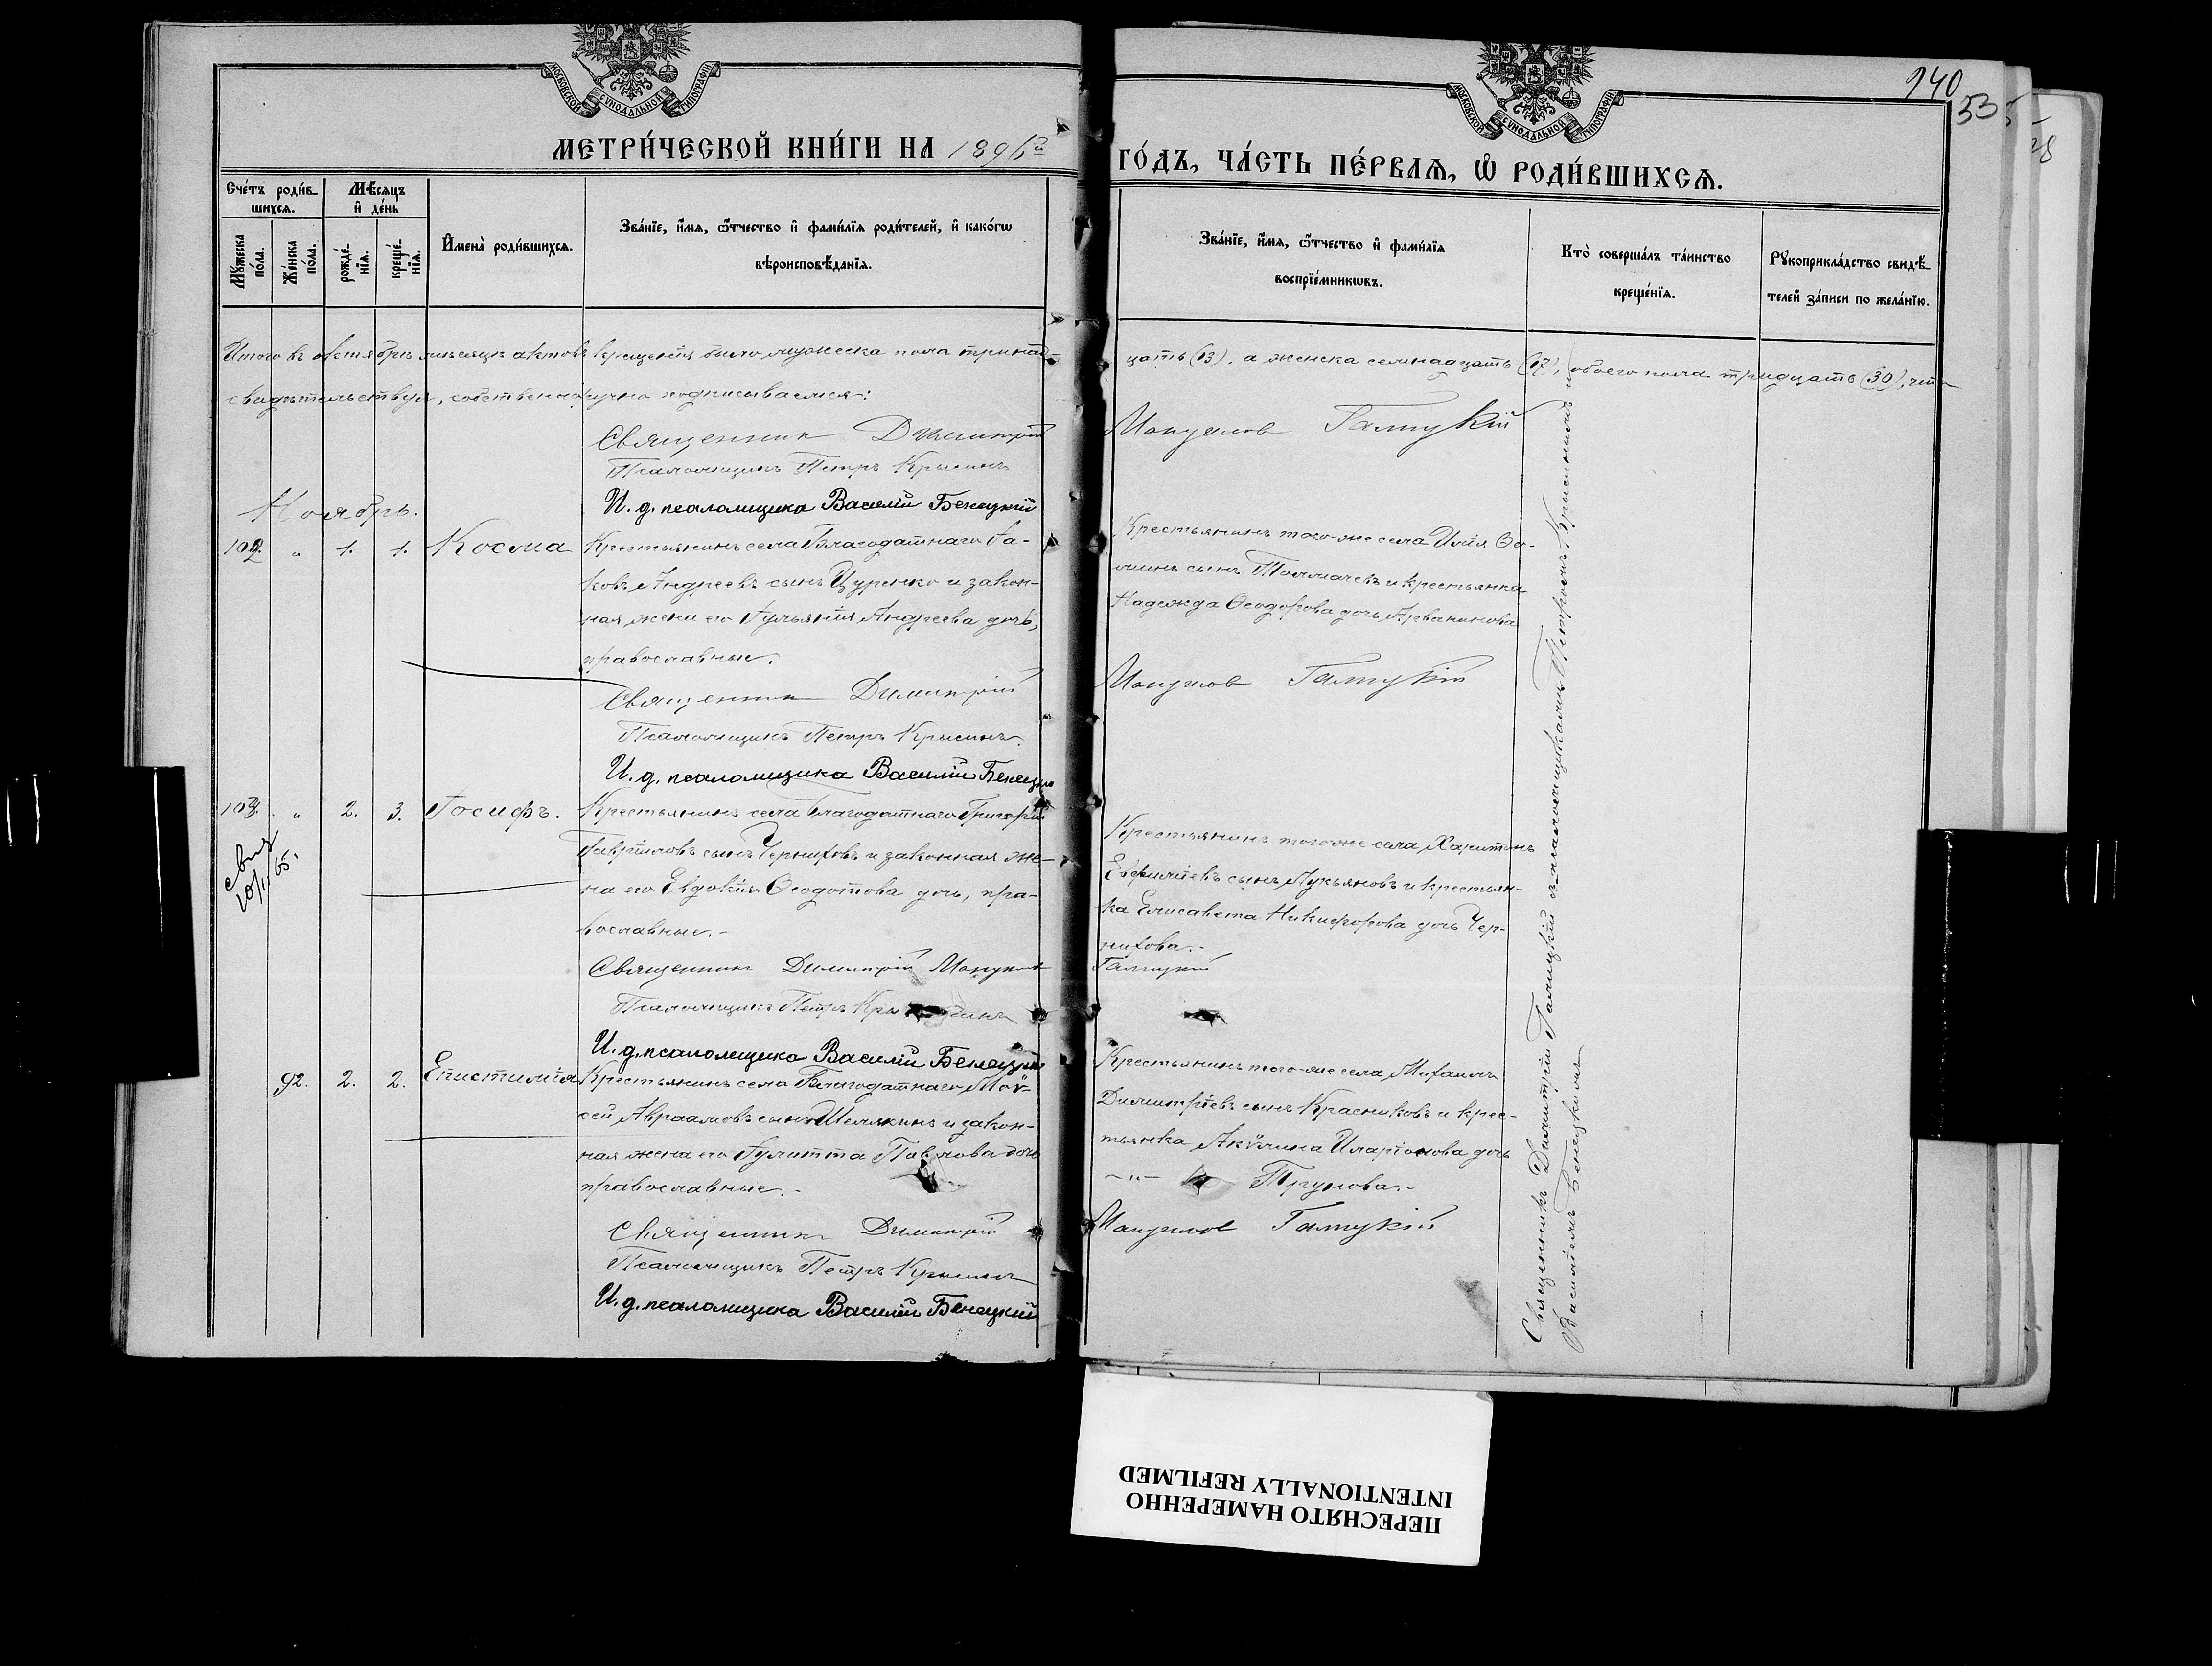 МОСКОВСКОЙ СѴНОДАЛЬНОЙ ТИПОГРАФІИ
МОСКОВСКОЙ СѴНОДАЛЬНОЙ ТИПОГРАФІИ
140
53
МЕТРИ́ЧЕСКОЙ КНИ́ГИ НА 1896й
ГО́ДЪ, ЧА́СТЬ ПЕ́РВАѦ, Ѽ РОДИ́ВШИХСѦ.
Сче́тъ роди́в-
шихсѧ.
Мѣ́сѧцъ
и҆ де́нь
Мꙋ́жеска по́ла.
Же́нска по́ла.
рожде́-нїѧ.
креще́-нїѧ.
И҆мена̀ роди́вшихсѧ.
Зва́нїе, и҆́мѧ, ѻ҆́тчество и҆ фами́лїѧ роди́телей, и҆ како́гѡ
вѣроисповѣ́данїѧ.
Зва́нїе, и҆́мѧ, ѻ҆́тчество и҆ фами́лїѧ
воспрїе́мникѡвъ.
Кто̀ соверша́лъ та́инство
креще́нїѧ.
Рꙋкоприкла́дство свидѣ́-
телей за́писи по жела́нїю.
Итого въ октябрѣ мѣсяцѣ актовъ крещенія было мужеска пола тринад-
цать (13), а женска семнадцать (17), обоего пола тридцать (30), что
свидѣтельствуя, собственноручно подписываемся:
Священник Димитрій Галицкій
Псаломщикъ Петръ Крысинъ
И. д. псаломщика Василій Бенецкій
Ноябрь.
102. „ 1. 1. Косма
Крестьянинъ села Благодатнаго Іа-
ковъ Андреевъ сынъ Цуренко и закон-
ная жена его Іульянія Андреева дочь,
православные.
Крестьянинъ того-же села Илія Ѳо-
минъ сынъ Толмачевъ и крестьянка
Надежда Ѳеодорова дочь
Священник Димитрій Галицкій
Псаломщикъ Петръ Крысинъ.
И. д. псаломщика Василій Бенецкій
103. „ 2. 3. Іосифъ.
свид
10/II 65.
Крестьянинъ села Благодатнаго Григорій
Гавріиловъ сынъ Черниковъ и законная же-
на его Евдокія Ѳеодотова дочь, пра-
вославные.-
Крестьянинъ того же села Харитонъ
Евфиміевъ сынъ Лукьяновъ и крестьян-
ка Елисавета Никифорова дочь Чер-
никова.-
Священник Димитрій Галицкій
Псаломщикъ Петръ Крысинъ
И. д. псаломщика Василій Бенецкій
92. 2. 2. Епистимія
Крестьянинъ села Благодатнаго Мои-
сей Авраамовъ сынъ Шелякинъ и закон-
ная жена его Іулитта Павлова дочь
православные.-
Крестьянинъ того-же села Михаилъ
Димитріевъ сынъ Красниковъ и крес-
тьянка Акѵлина Иларіонова дочь
Трунова.-
Священник Димитрій Галицкій
Псаломщикъ Петръ Крысинъ
И. д. псаломщика Василій Бенецкій
Священникъ Димитрій Галицкій съ псаломщиками Петромъ Крысинымъ и
Василіемъ Бенецкимъ
ПЕРЕСНЯТО НАМЕРЕННО
INTENTIONALLY REFILMED